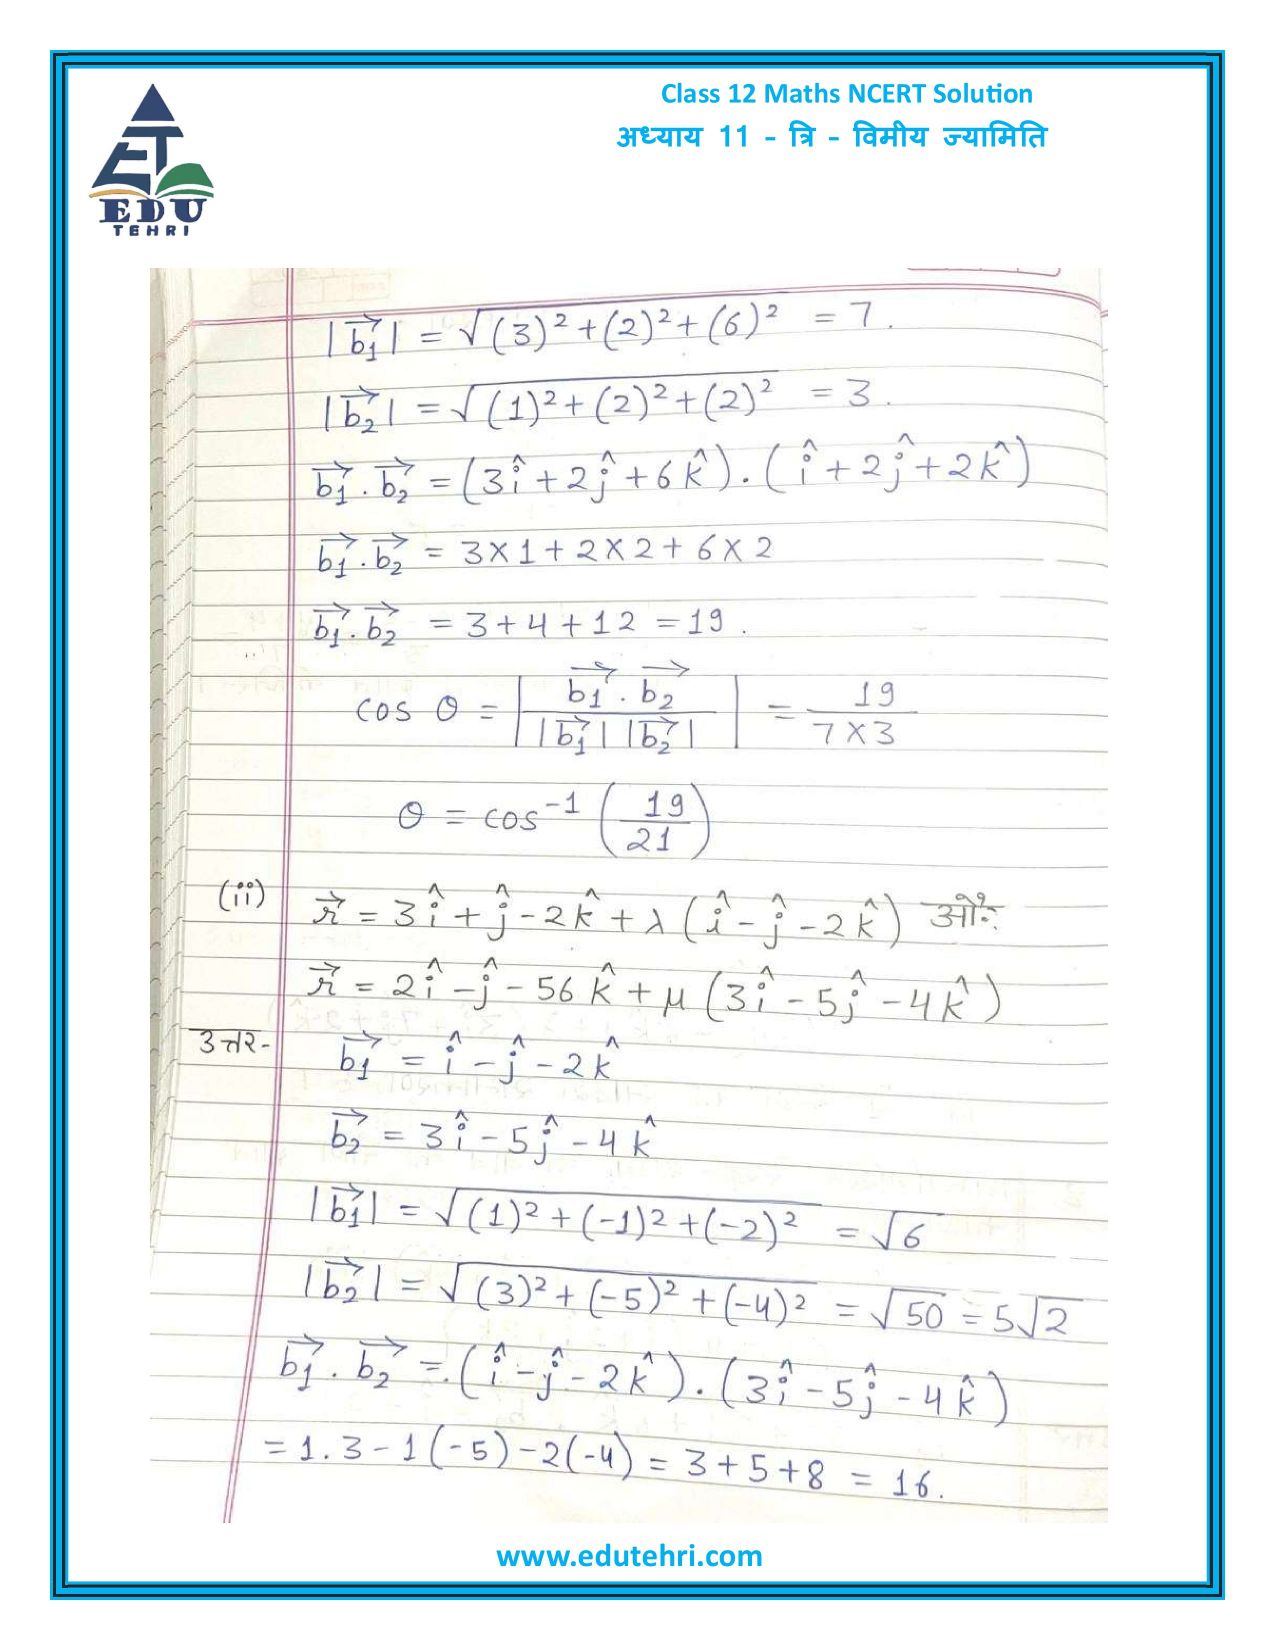 Class 12 Maths NCERT Solution
अध्याय 11 - त्रि - विमीय ज्यामिति
EDU
TEHRI
|b₁⃗| = √(3)² + (2)² + (6)² = 7.
|b₂⃗| = √(1)² + (2)² + (2)² = 3.
b₁⃗ . b₂⃗ = (3î + 2ĵ + 6k̂) . (î + 2ĵ + 2k̂)
b₁⃗ . b₂⃗ = 3×1 + 2×2 + 6×2
b₁⃗ . b₂⃗ = 3 + 4 + 12 = 19.
cos θ = | b₁⃗ . b₂⃗ / |b₁⃗| |b₂⃗| | = 19 / 7×3
θ = cos⁻¹ (19/21)
(ii) r⃗ = 3î + ĵ - 2k̂ + λ (î - ĵ - 2k̂) और
r⃗ = 2î - ĵ - 56k̂ + μ (3î - 5ĵ - 4k̂)
उत्तर- b₁⃗ = î - ĵ - 2k̂
b₂⃗ = 3î - 5ĵ - 4k̂
|b₁⃗| = √(1)² + (-1)² + (-2)² = √6
|b₂⃗| = √(3)² + (-5)² + (-4)² = √50 = 5√2
b₁⃗ . b₂⃗ = (î - ĵ - 2k̂) . (3î - 5ĵ - 4k̂)
= 1.3 - 1(-5) - 2(-4) = 3 + 5 + 8 = 16.
www.edutehri.com